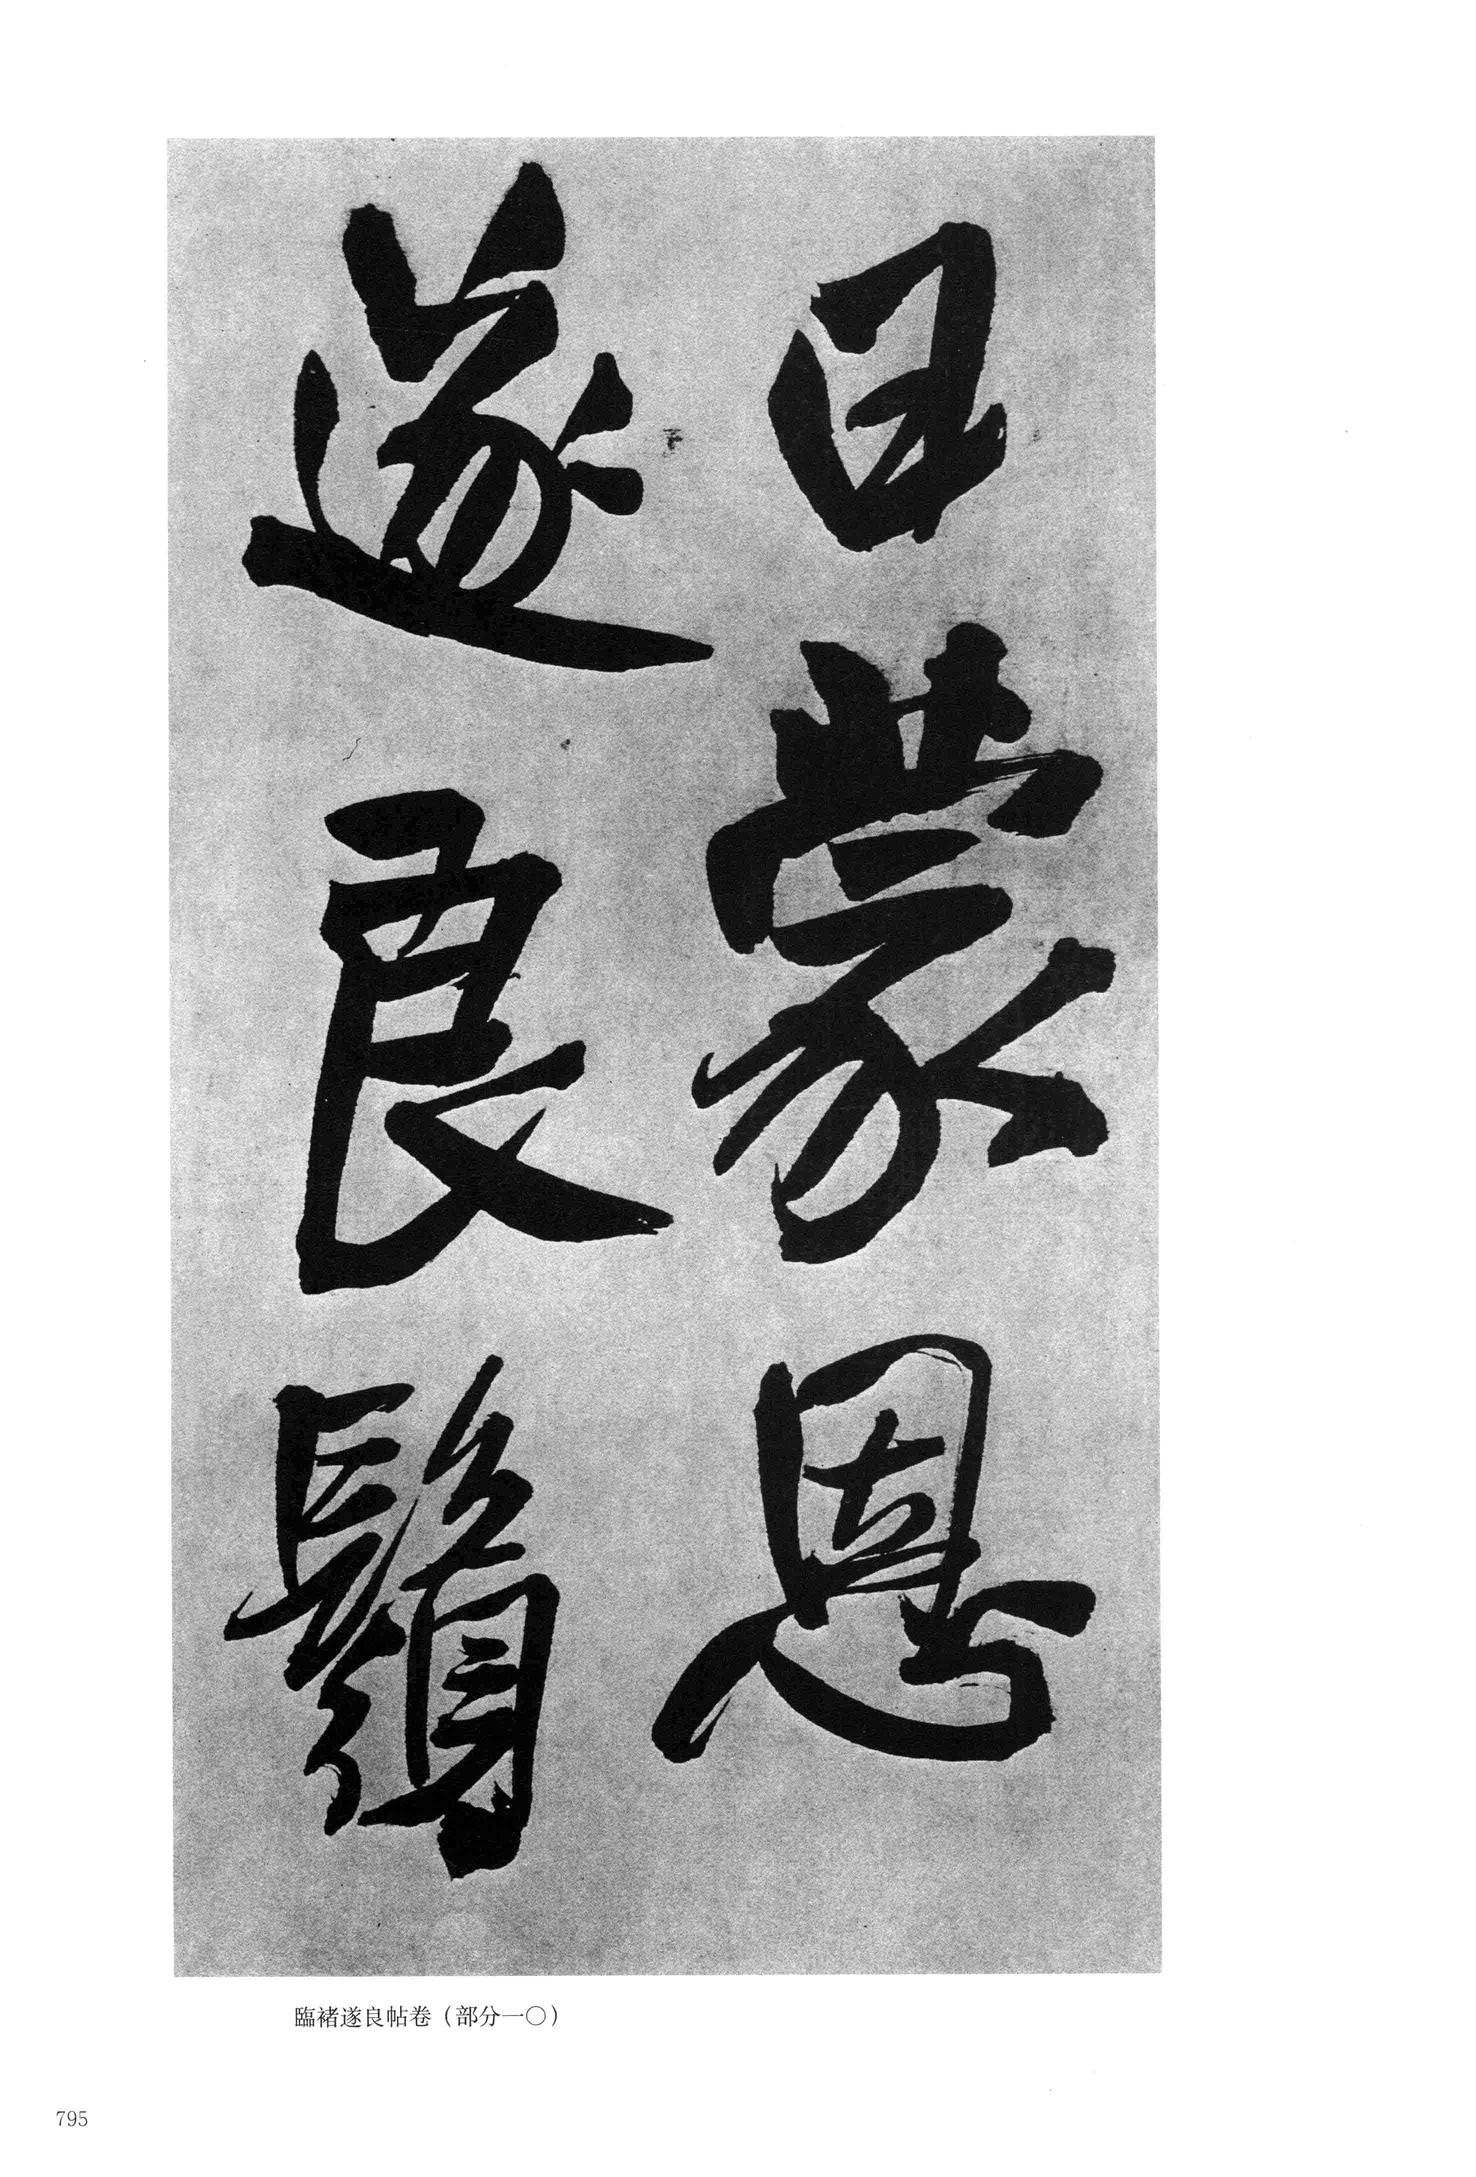 日蒙恩
遂良鬚
臨褚遂良帖卷（部分一〇）
795